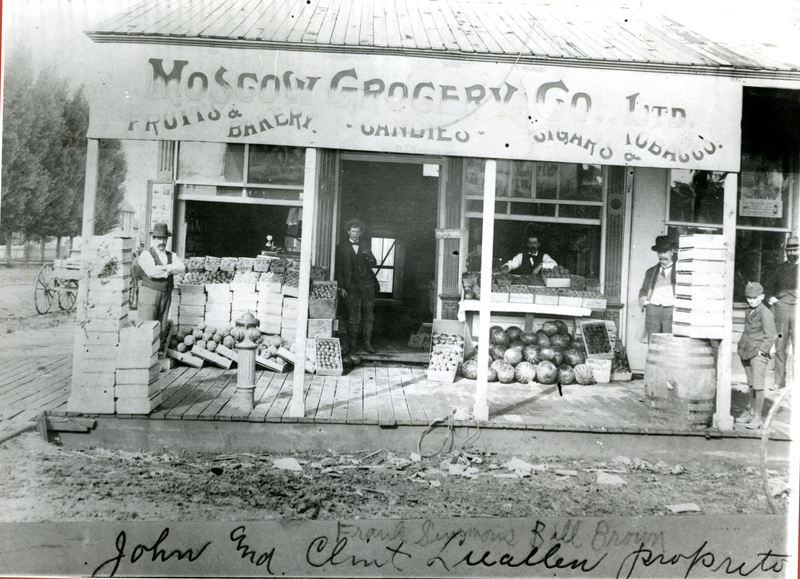 MOSCOW GROCERY CO. LTD.
FRUITS & BAKERY. · CANDIES · CIGARS & TOBACCO.
Frank Simmons Bill Brown
John And Clint Lueallen propreto